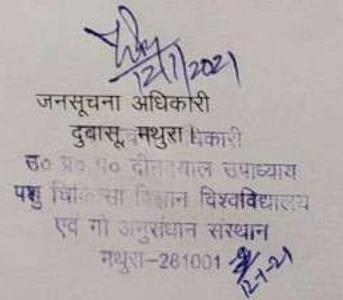 12/1/2021
जनसूचना अधिकारी
दुबासू, मथुरा।
उ० प्र० पं० दीनदयाल उपाध्याय
पशु चिकित्सा विज्ञान विश्वविद्यालय
एवं गो अनुसंधान संस्थान
मथुरा-281001
12-1-21